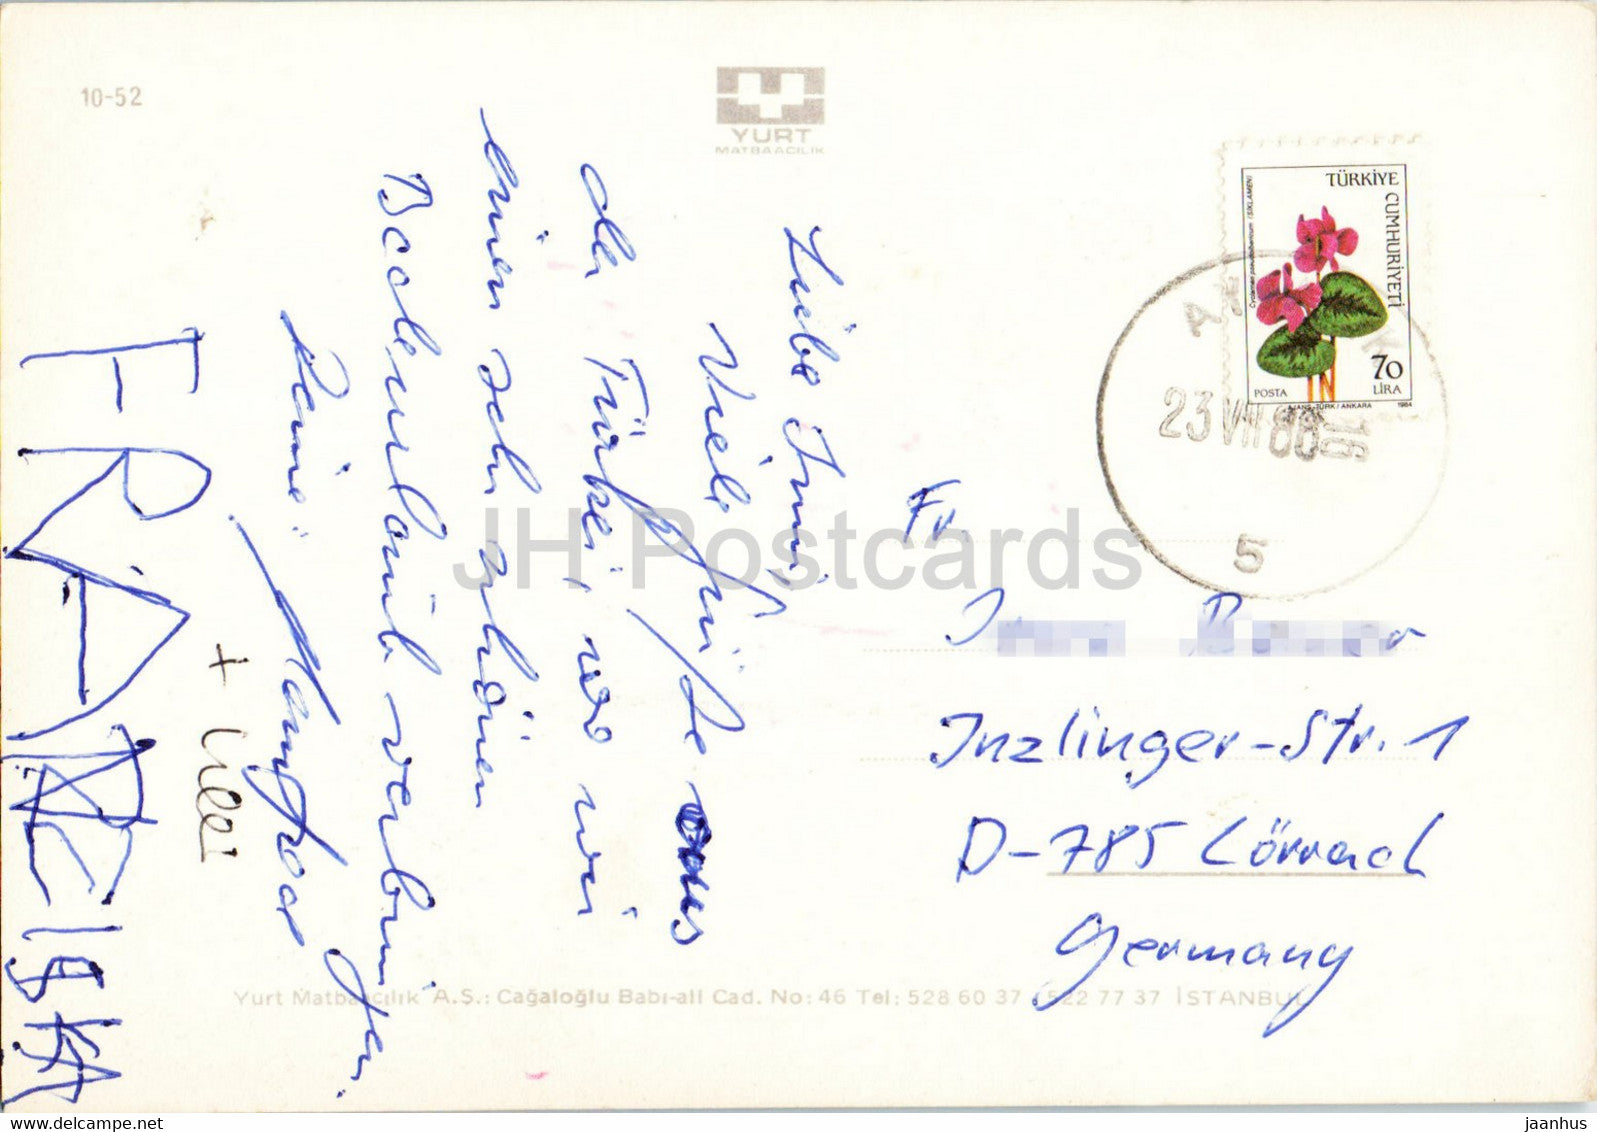 10-52
YURT
MATBAACILIK
Liebe Irmi,
Viele Grüße aus
der Türkei, wo wir
einen sehr schönen
Badeurlaub verbringen.
Deine
Manfred
+ Uli
FRANZISKA
TÜRKİYE
CUMHURİYETİ
Cyclamen pseudoibericum (SIKLAMEN)
70
LİRA
POSTA
AJANS-TÜRK / ANKARA 1984
23 VII 86 16
5
Fr.
Inzlinger-Str. 1
D-785 Lörrach
Germany
Yurt Matbaacılık A.Ş.: Cağaloğlu Babı-ali Cad. No: 46 Tel: 528 60 37 / 522 77 37 İSTANBUL
JH Postcards
www.delcampe.net
jaanhus